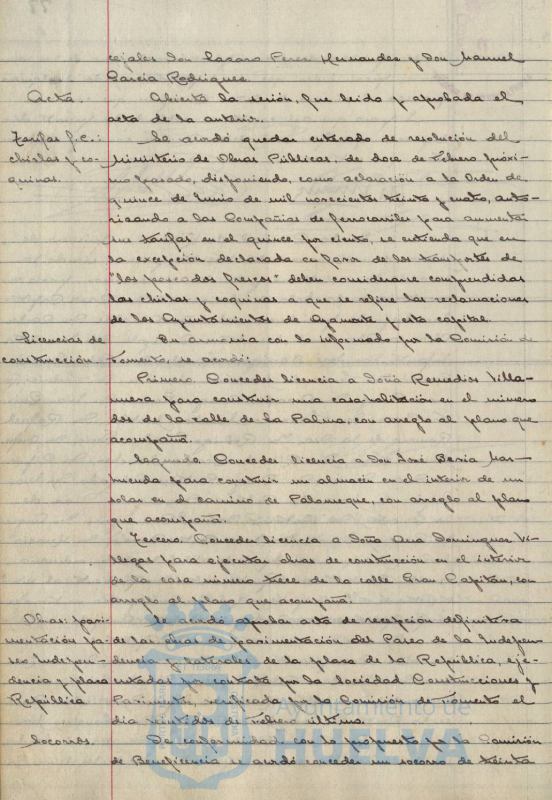 cejales Don Lazaro Perez Hernandez y Don Manuel
Garcia Rodriguez.
Acta. Abierta la sesión, fue leido y aprobada el
acta de la anterior.
Tarifas f.c.: Se acordó quedar enterado de resolución del
chirlas y co- Ministerio de Obras Públicas, de doce de Febrero próxi-
quinas. mo pasado, disponiendo, como aclaración a la Orden de
quince de Junio de mil novecientos treinta y cuatro, auto-
rizando a las Compañias de ferrocarriles para aumentar
sus tarifas en el quince por ciento, se entienda que en
la excepción declarada en favor de los transportes de
"los pescados frescos" deben considerarse comprendidas
las chirlas y coquinas a que se refiere las reclamaciones
de los Ayuntamientos de Ayamonte y esta capital.
Licencias de En armonia con lo informado por la Comisión de
construcción. Fomento, se acordó:
Primero. Conceder licencia a Doña Remedios Villa-
nueva para construir una casa habitación en el número
dos de la calle de la Palma, con arreglo al plano que
acompaña.
Segundo. Conceder licencia a Don José
para construir un almacén en el interior de un
solar en el camino de Palomeque, con arreglo al plano
que acompaña.
Tercero. Conceder licencia a Doña Ana Dominguez Vi-
llegas para ejecutar obras de construcción en el interior
de la casa número trece de la calle Gran Capitan, con
arreglo al plano que acompaña.
Obras: pavi- Se acordó aprobar acta de recepción definitiva
mentación pa- de las obras de pavimentación del Paseo de la Indepen-
seo Indepen- dencia y laterales de la plaza de la República, eje-
dencia y plaza cutadas por contrata por la Sociedad Construcciones y
República Pavimentos, verificada por la Comisión de Fomento el
dia veintidos de Febrero último.
Socorros. De conformidad con lo propuesto por la Comisión
de Beneficencia se acordó conceder un socorro de treinta
Ayuntamiento de
HUELVA